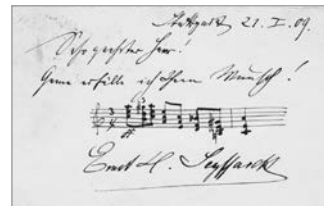 Stuttgart 21. I. 09.
Sehr geehrter Herr!
Gerne erfülle ich Ihren Wunsch!
Ernst H. Seyffardt